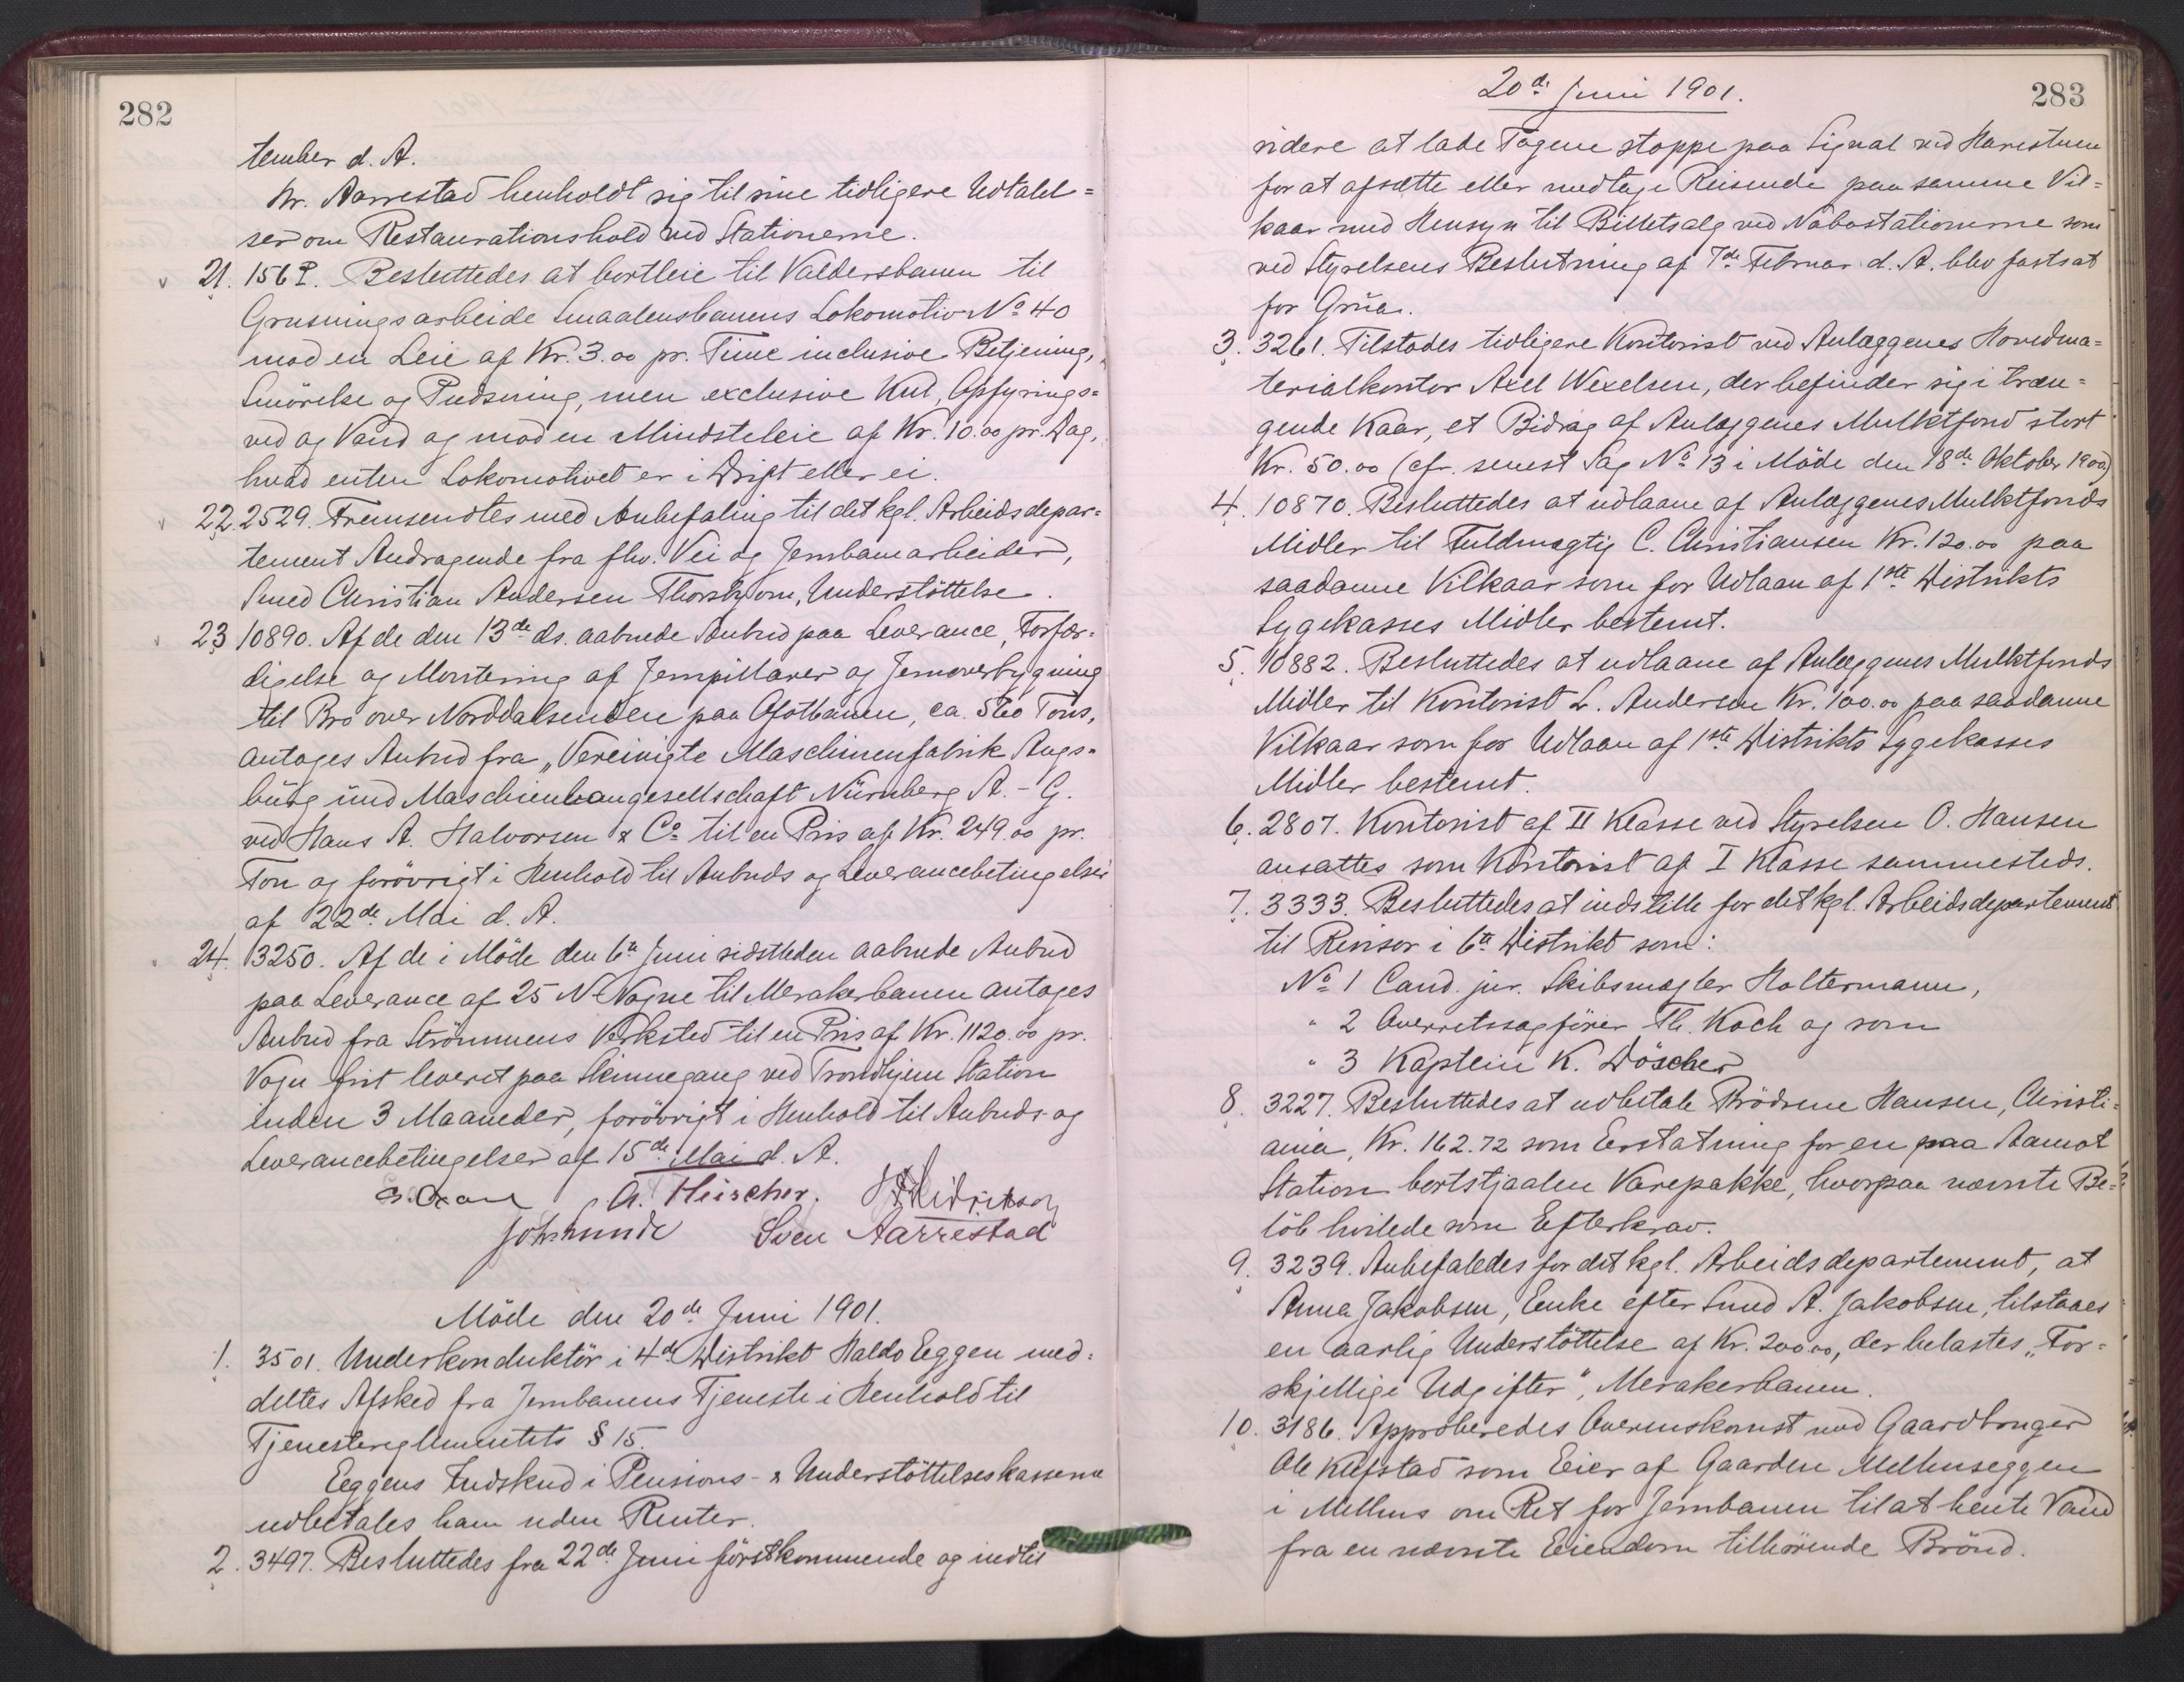 282
tember d. A.
Hr. Aarrestad henholdt sig til sine tidligere Udtalel=
ser om Restaurationshold ved Stationerne.
21. 156 P. Besluttedes at bortleie til Valdersbanen til
Grusningsarbeide Smaalensbanens Lokomotiv No 40
mod en Leie af Kr. 3.00 pr. Time inclusive Betjening,
Smörelse og Pudsning, men exclusive Kul, Opfyrings=
ved og Vand og mod en Mindsteleie af Kr. 10.00 pr. Dag,
hvad enten Lokomotivet er i Drift eller ei.
22. 2529. Fremsendtes med Anbefaling til det kgl. Arbeidsdepar=
tement Andragende fra fhv. Vei og Jernbanearbeider,
Smed Christian Andersen Thorsby om Understöttelse.
23 10890. Af de den 13de ds. aabnede Anbud paa Leverance, Forfær=
digelse og Montering af Jernpillarer og Jernoverbygning
til Bro over Norddalsenden paa Ofotbanen, ca. 560 Tons,
antages Anbud fra „Vereinigte Maschinenfabrik Augs=
burg und Maschienbaugesellschaft Nürnberg A.-G.
ved Hans A. Halvorsen & Co til en Pris af Kr. 249.00 pr.
Ton og forövrigt i Henhold til Anbuds og Leverancebetingelser
af 22de Mai d. A.
24. 13250. Af de i Möde den 6te Juni sidstleden aabnede Anbud
paa Leverance af 25 N-Vogne til Merakerbanen antages
Anbud fra Strömmens Verksted til en Pris af Kr. 1120.00 pr.
Vogn frit leveret paa Skinnegang ved Trondhjem Station
inden 3 Maaneder, forövrigt i Henhold til Anbuds- og
Leverancebetingelser af 15de Mai d. A.
A. Fleischer.
Joh. Lunde Sven Aarrestad
Möde den 20de Juni 1901.
1. 3501. Underkonduktör i 4de Distrikt Haldo Eggen med=
deltes Afsked fra Jernbanens Tjeneste i Henhold til
Tjenestereglementets § 15.
Eggens Indskud i Pensions- & Understöttelseskasserne
udbetales ham uden Renter.
2. 3497. Besluttedes fra 22de Juni förstkommende og indtil
20de Juni 1901.
283
videre at lade Togene stoppe paa Signal ved Harestuen
for at afsætte eller medtage Reisende paa samme Vil=
kaar med Hensyn til Billetsalg ved Nabostationerne som
ved Styrelsens Beslutning af 7de Februar d. A. blev fastsat
for Grua.
3. 3261. Tilstodes tidligere Kontorist ved Anlæggenes Hovedma=
terialkontor Axel Wexelsen, der befinder sig i træn=
gende Kaar, et Bidrag af Anlæggenes Mulktfond stort
Kr. 50.00 (cfr. senest Sag No 13 i Möde den 18de Oktober 1900)
4. 10870. Besluttedes at udlaane af Anlæggenes Mulktfonds
Midler til Fuldmægtig C. Christiansen Kr. 120.00 paa
saadanne Vilkaar som for Udlaan af 1ste Distrikts
Sygekasses Midler bestemt.
5. 10882. Besluttedes at udlaane af Anlæggenes Mulktfonds
Midler til Kontorist L. Andersen Kr. 100.00 paa saadanne
Vilkaar som for Udlaan af 1ste Distrikts Sygekasses
Midler bestemt.
6. 2807. Kontorist af II Klasse ved Styrelsen O. Hansen
ansattes som Kontorist af I Klasse sammesteds.
7. 3333. Besluttedes at indstille for det kgl. Arbeidsdepartement
til Revisor i 6te Distrikt som:
No 1 Cand. jur. Skibsmægler Holtermann,
" 2 Overretssagförer Th. Koch og som
" 3 Kaptein K. Döscher
8. 3227. Besluttedes at udbetale Brödrene Hansen, Christi=
ania, Kr. 162.72 som Erstatning for en paa Aamot
Station bortstjaalen Varepakke, hvorpaa nævnte Be=
löb hvilede som Efterkrav.
9. 3239. Anbefaledes for det kgl. Arbeidsdepartement, at
Anna Jakobsen, Enke efter Smed A. Jakobsen, tilstaaes
en aarlig Understöttelse af Kr. 200.00, der belastes „For=
skjellige Udgifter", Merakerbanen.
10. 3186. Approberedes Overenskomst med Gaardbruger
Ole Klefstad som Eier af Gaarden Melhuseggen
i Melhus om Ret for Jernbanen til at hente Vand
fra en nævnte Eiendom tilhörende Brönd.